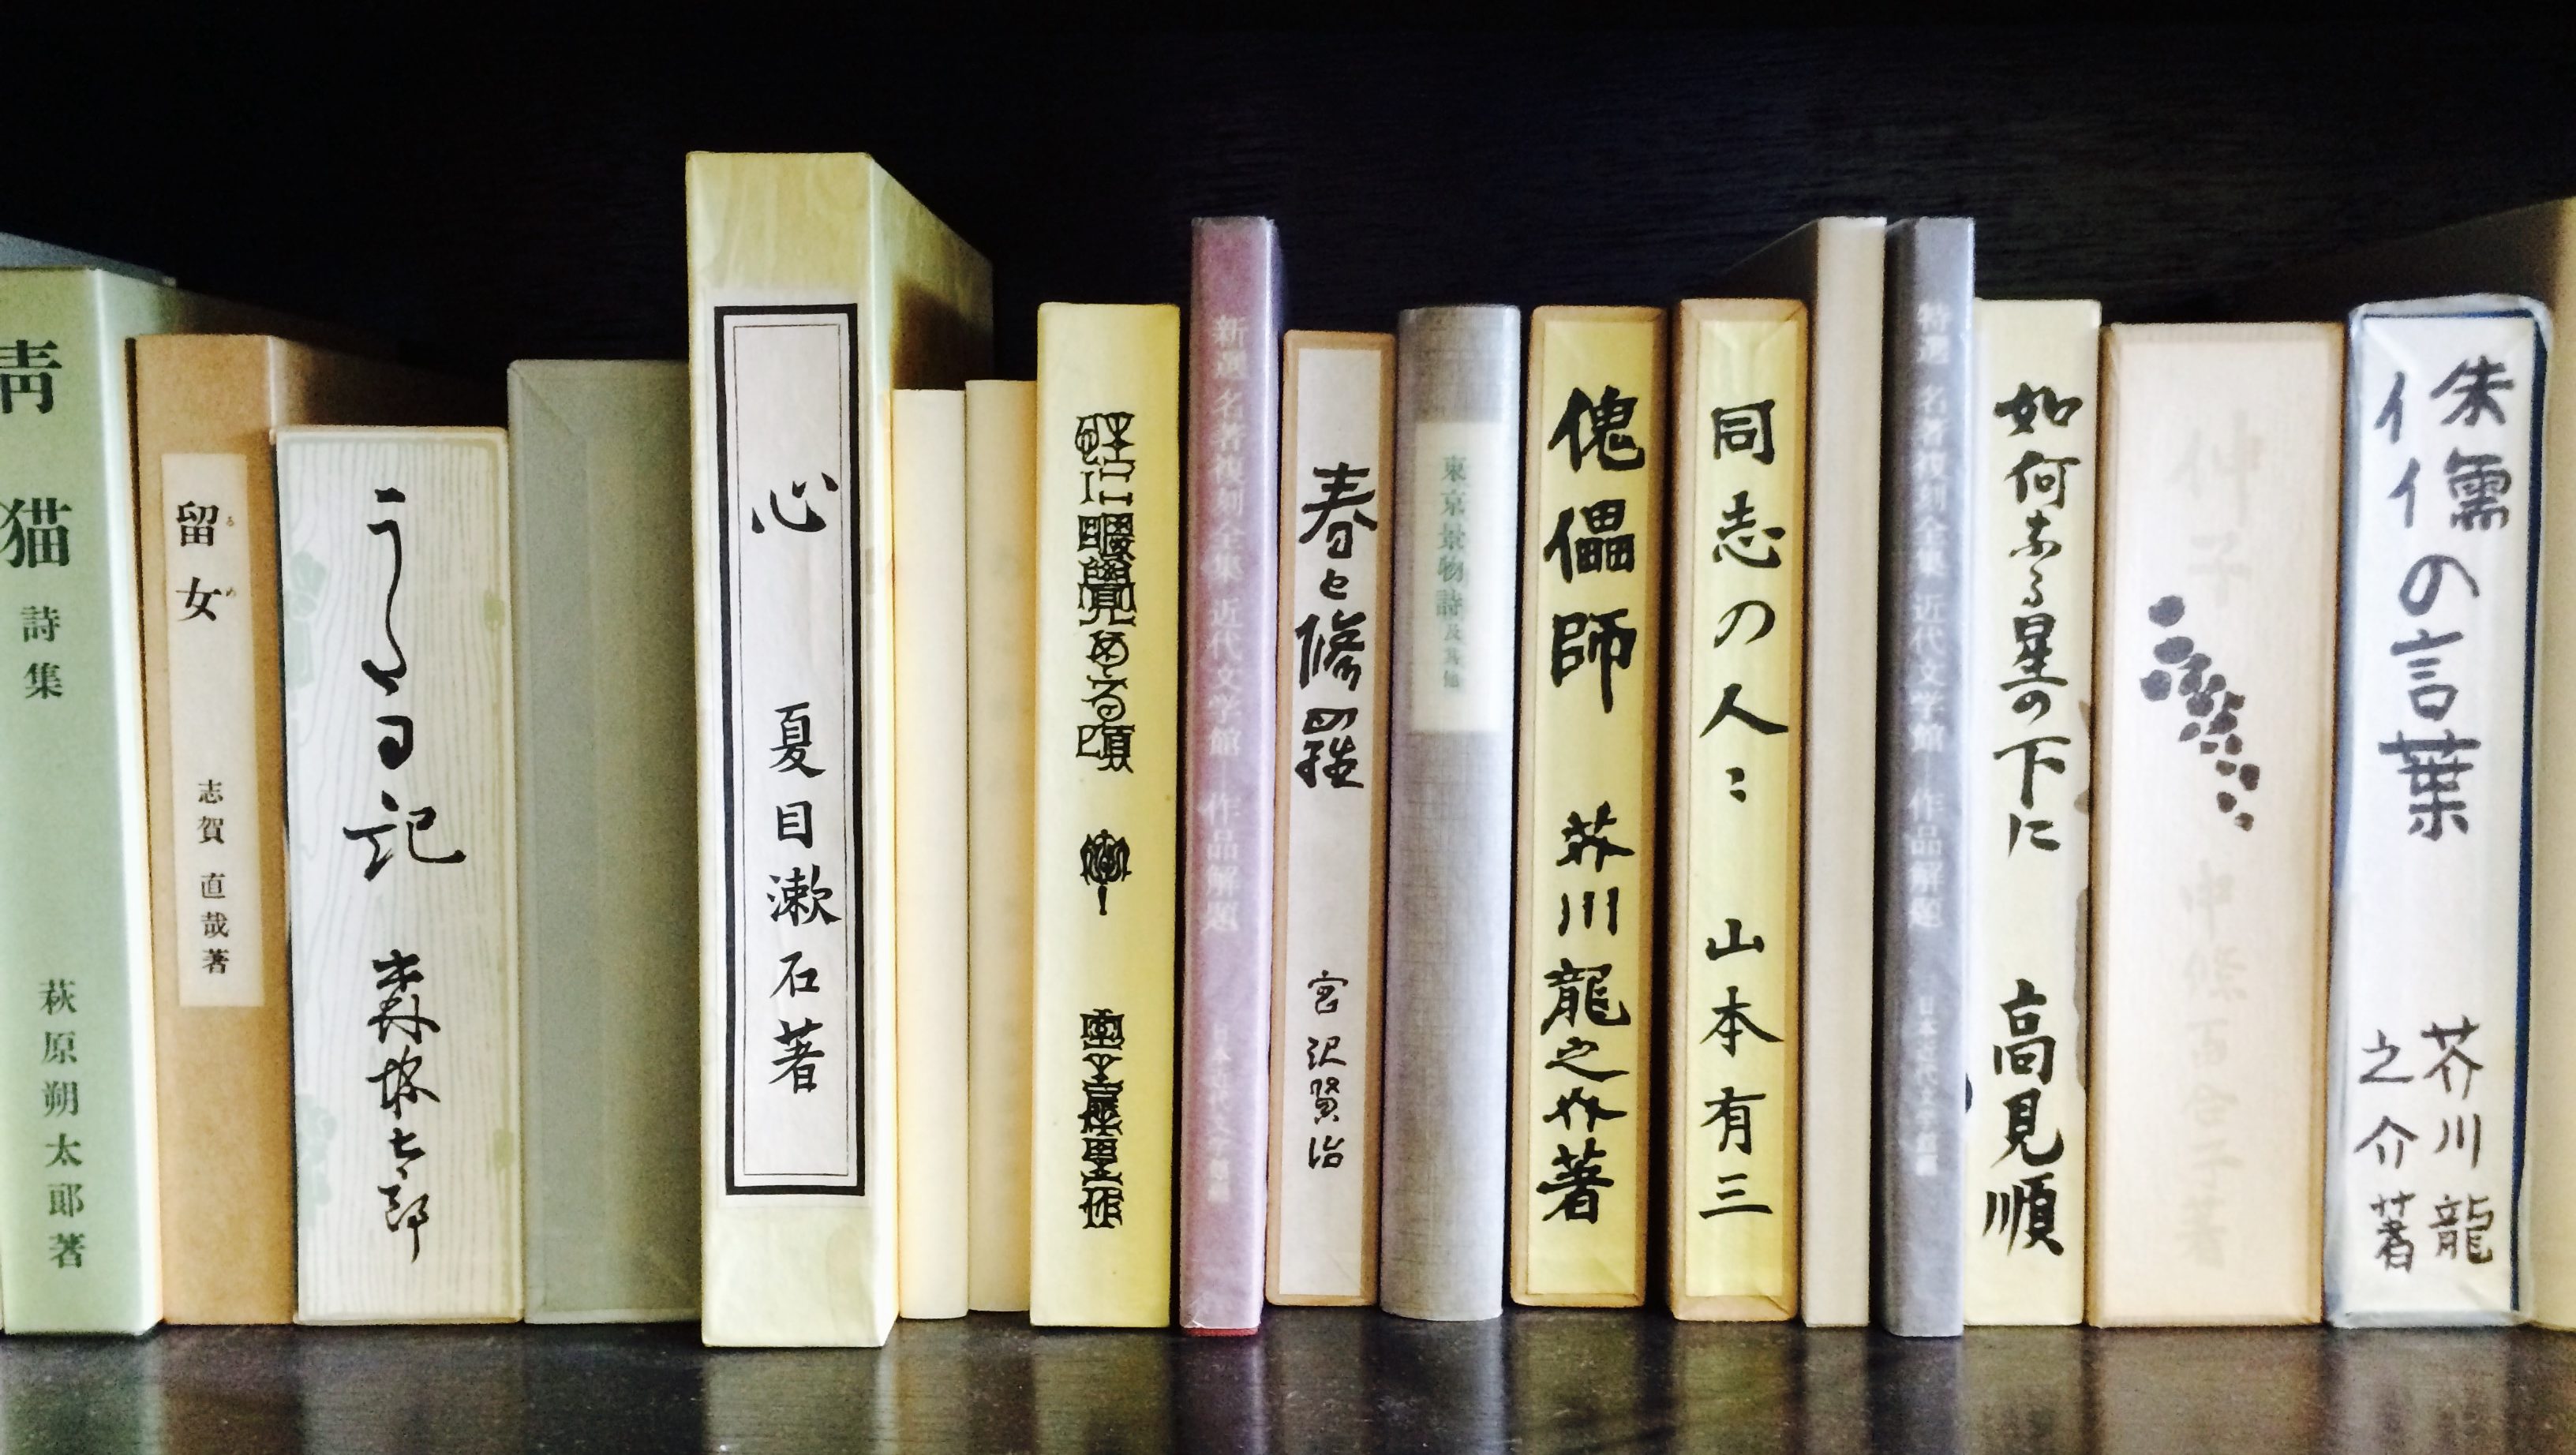 靑猫 詩集 萩原朔太郎著
留女 志賀直哉著
るめ
うた日記 森林太郎
心 夏目漱石著
新選 名著複刻全集 近代文学館 作品解題 日本近代文学館編
春と修羅 宮沢賢治
東京景物詩及其他
傀儡師 芥川龍之介著
同志の人〻 山本有三
特選 名著複刻全集 近代文学館 作品解題 日本近代文学館編
如何なる星の下に 高見順
伸子 中條百合子著
侏儒の言葉 芥川龍之介著